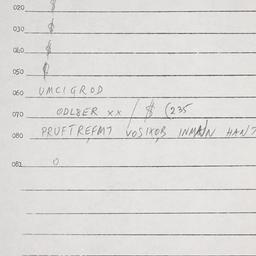 020 $
030 $
040 $
050 $
060 UMCIGROD
070 ODL8ER xx / $ (235
080 PRUFTREFMT VOSIXOB INMAIN HANT
081 0